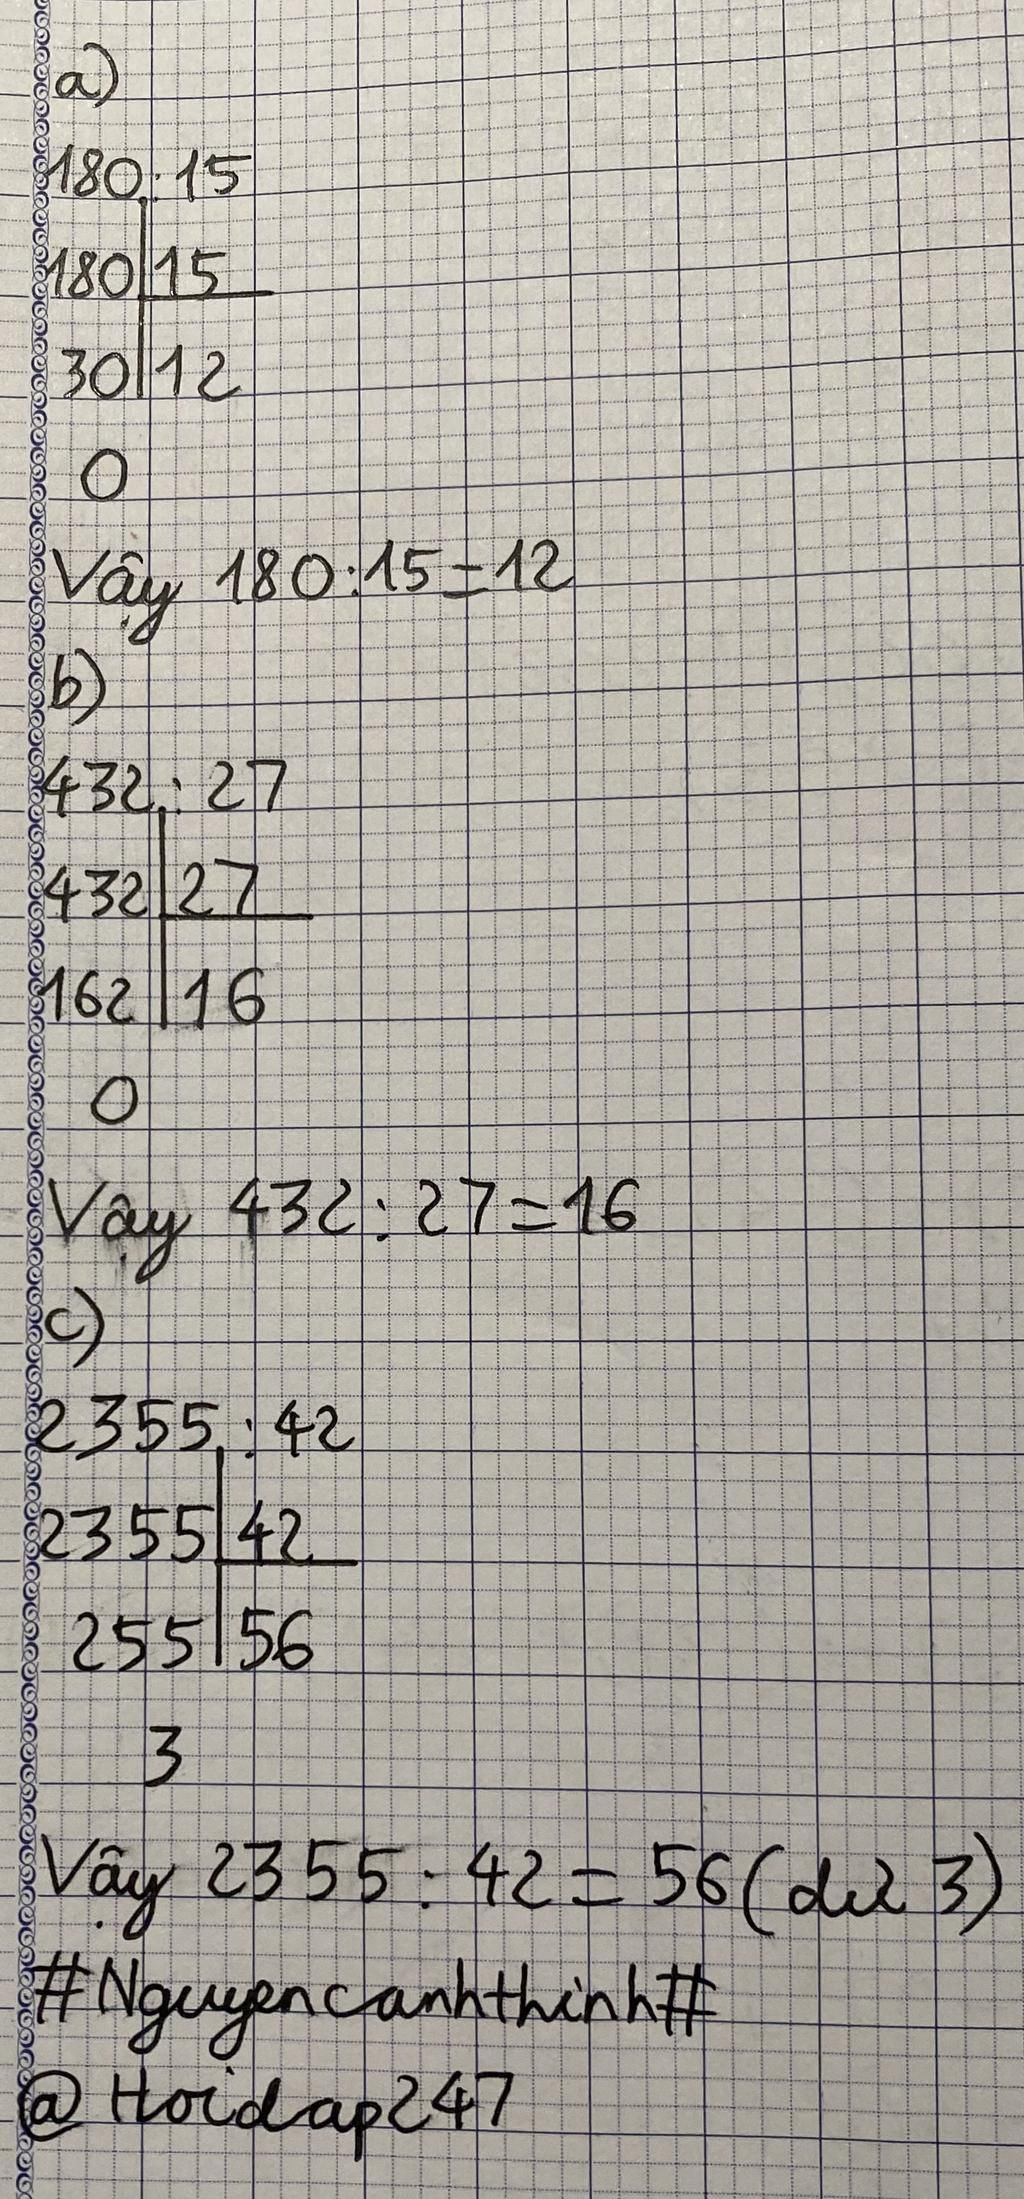 a)
180:15
180 15
30 12
0
Vậy 180:15=12
b)
432:27
432 27
162 16
0
Vậy 432:27=16
c)
2355:42
2355 42
255 56
3
Vậy 2355:42=56(dư 3)
#Nguyencanhthinh#
@Hoidap247